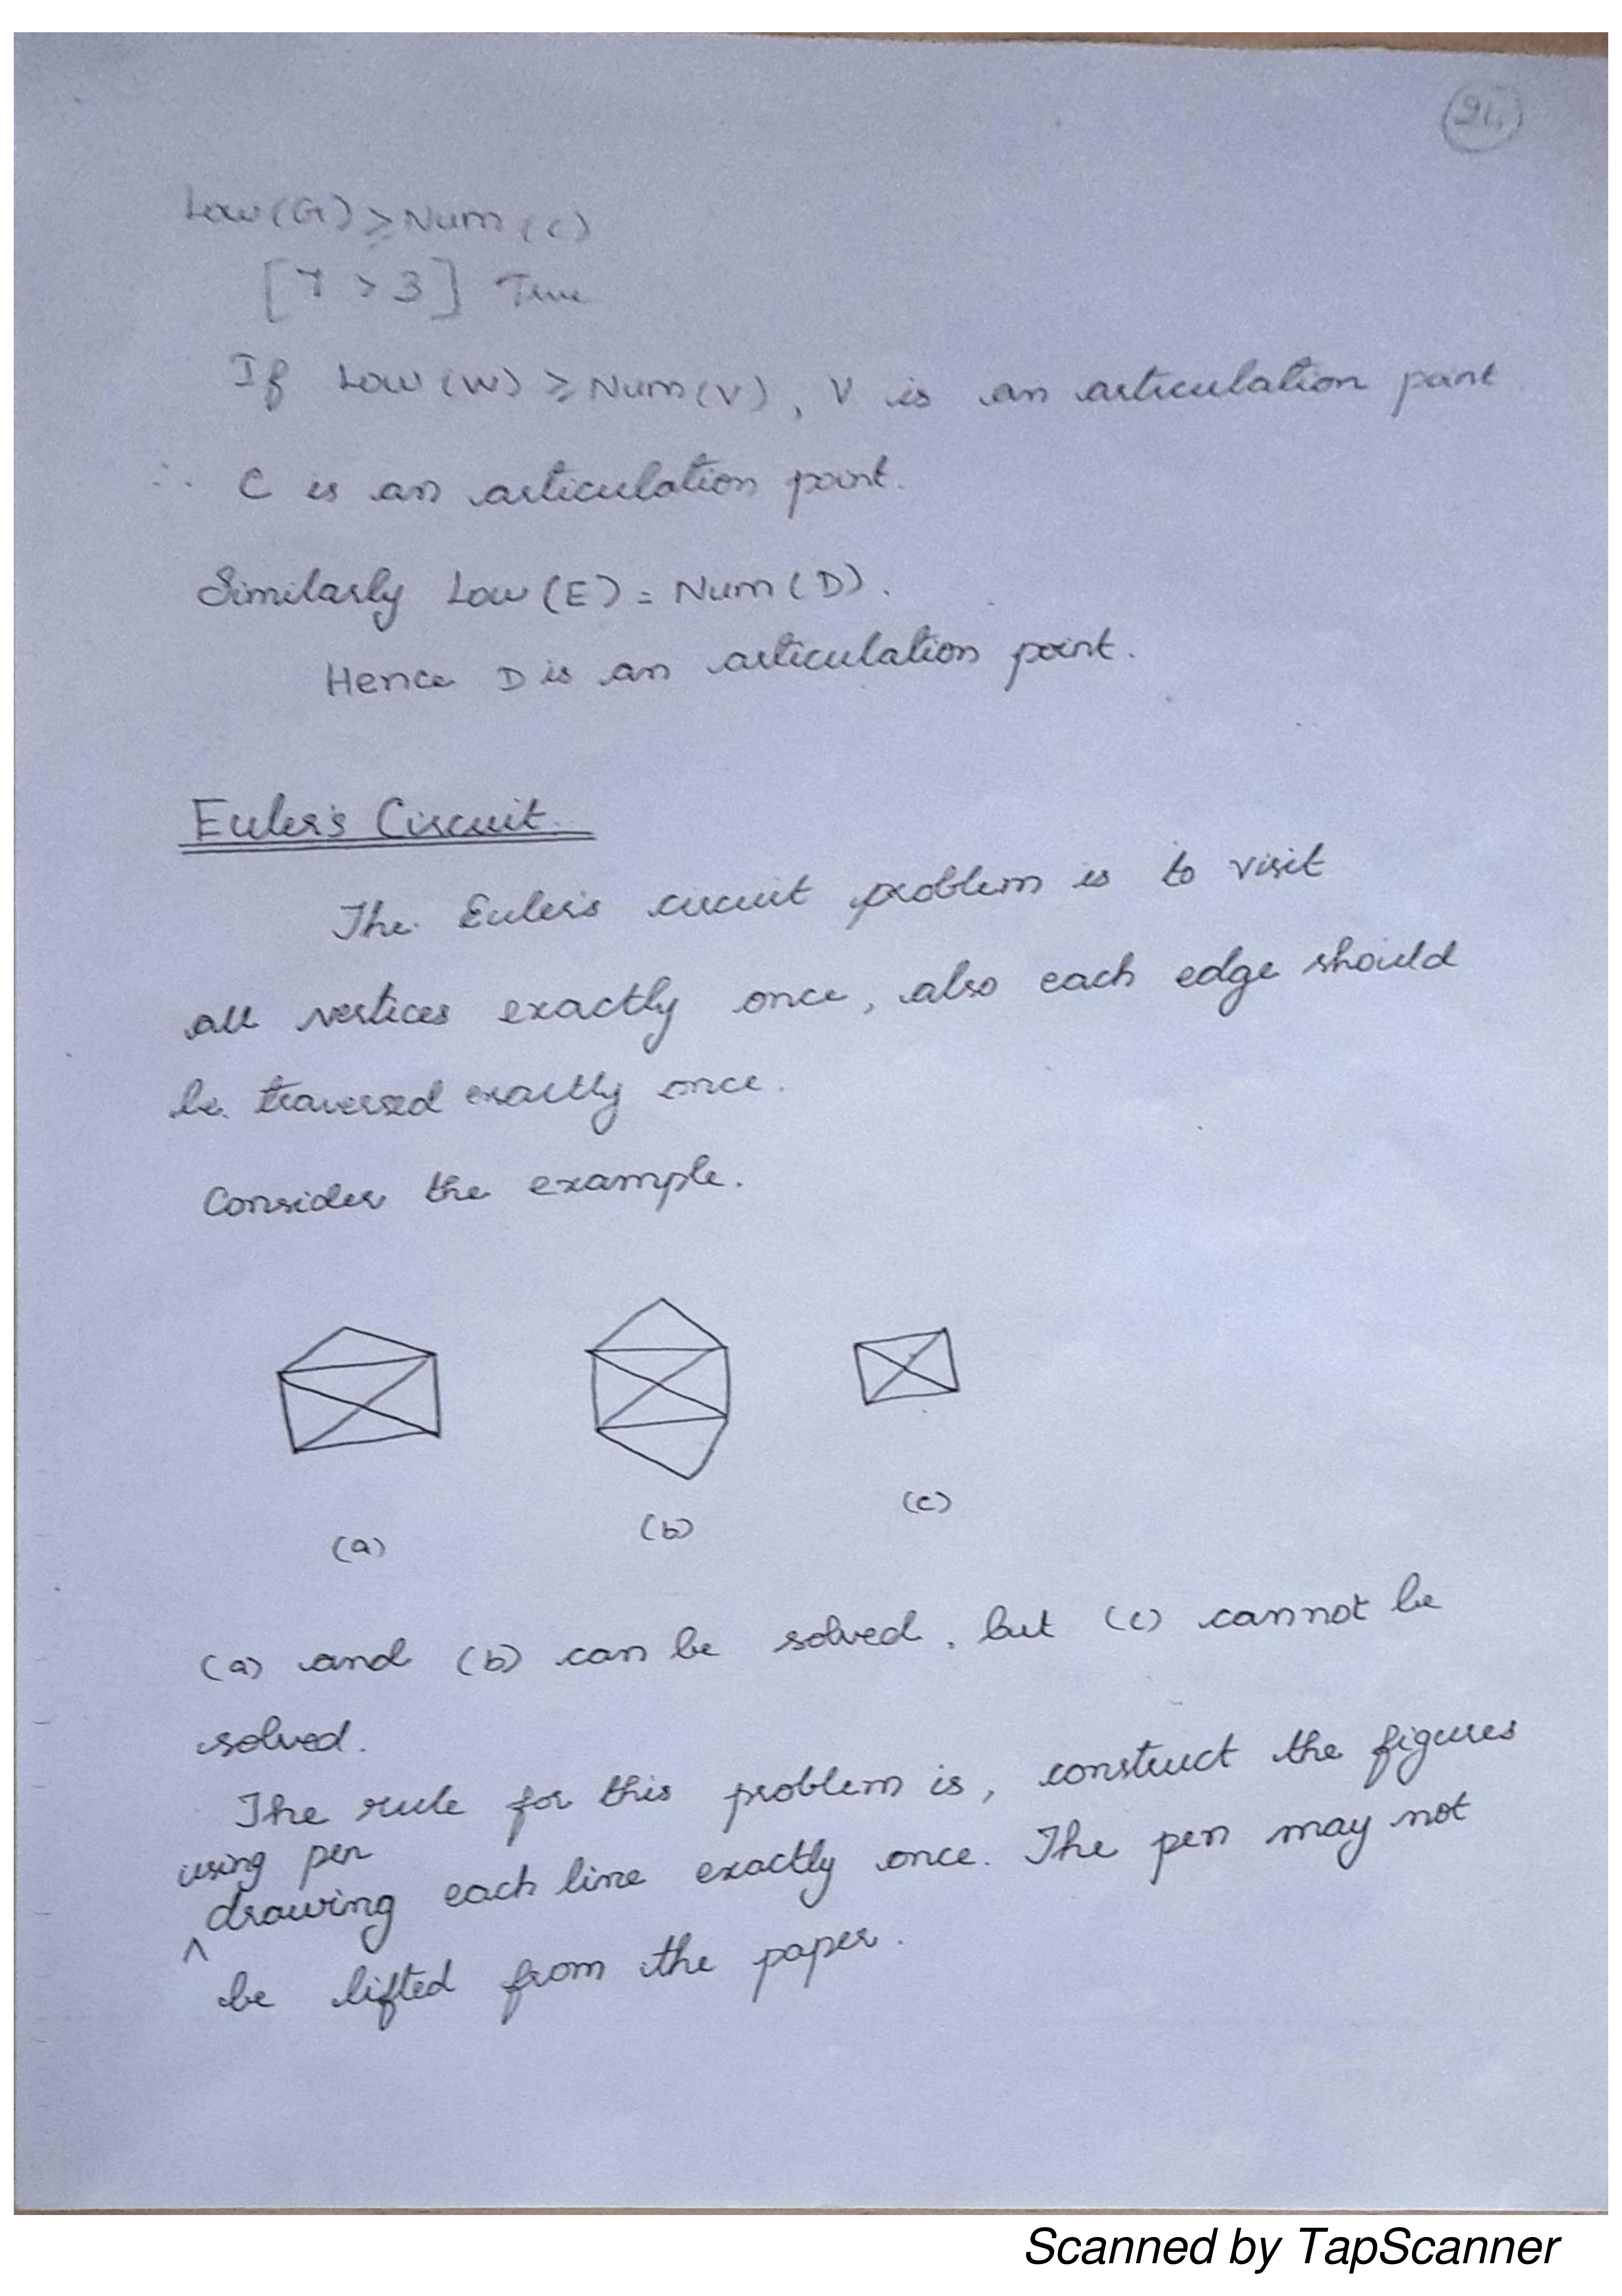 91.
Low(G) ≥ Num(C)
[7 > 3] True
If Low(W) ≥ Num(V), V is an articulation point
∴ C is an articulation point.
Similarly Low(E) = Num(D).
Hence D is an articulation point.
Euler's Circuit.
The Euler's circuit problem is to visit
all vertices exactly once, also each edge should
be traversed exactly once.
Consider the example.
(a) (b) (c)
(a) and (b) can be solved, but (c) cannot be
solved.
The rule for this problem is, construct the figures
using pen
^ drawing each line exactly once. The pen may not
be lifted from the paper.
Scanned by TapScanner